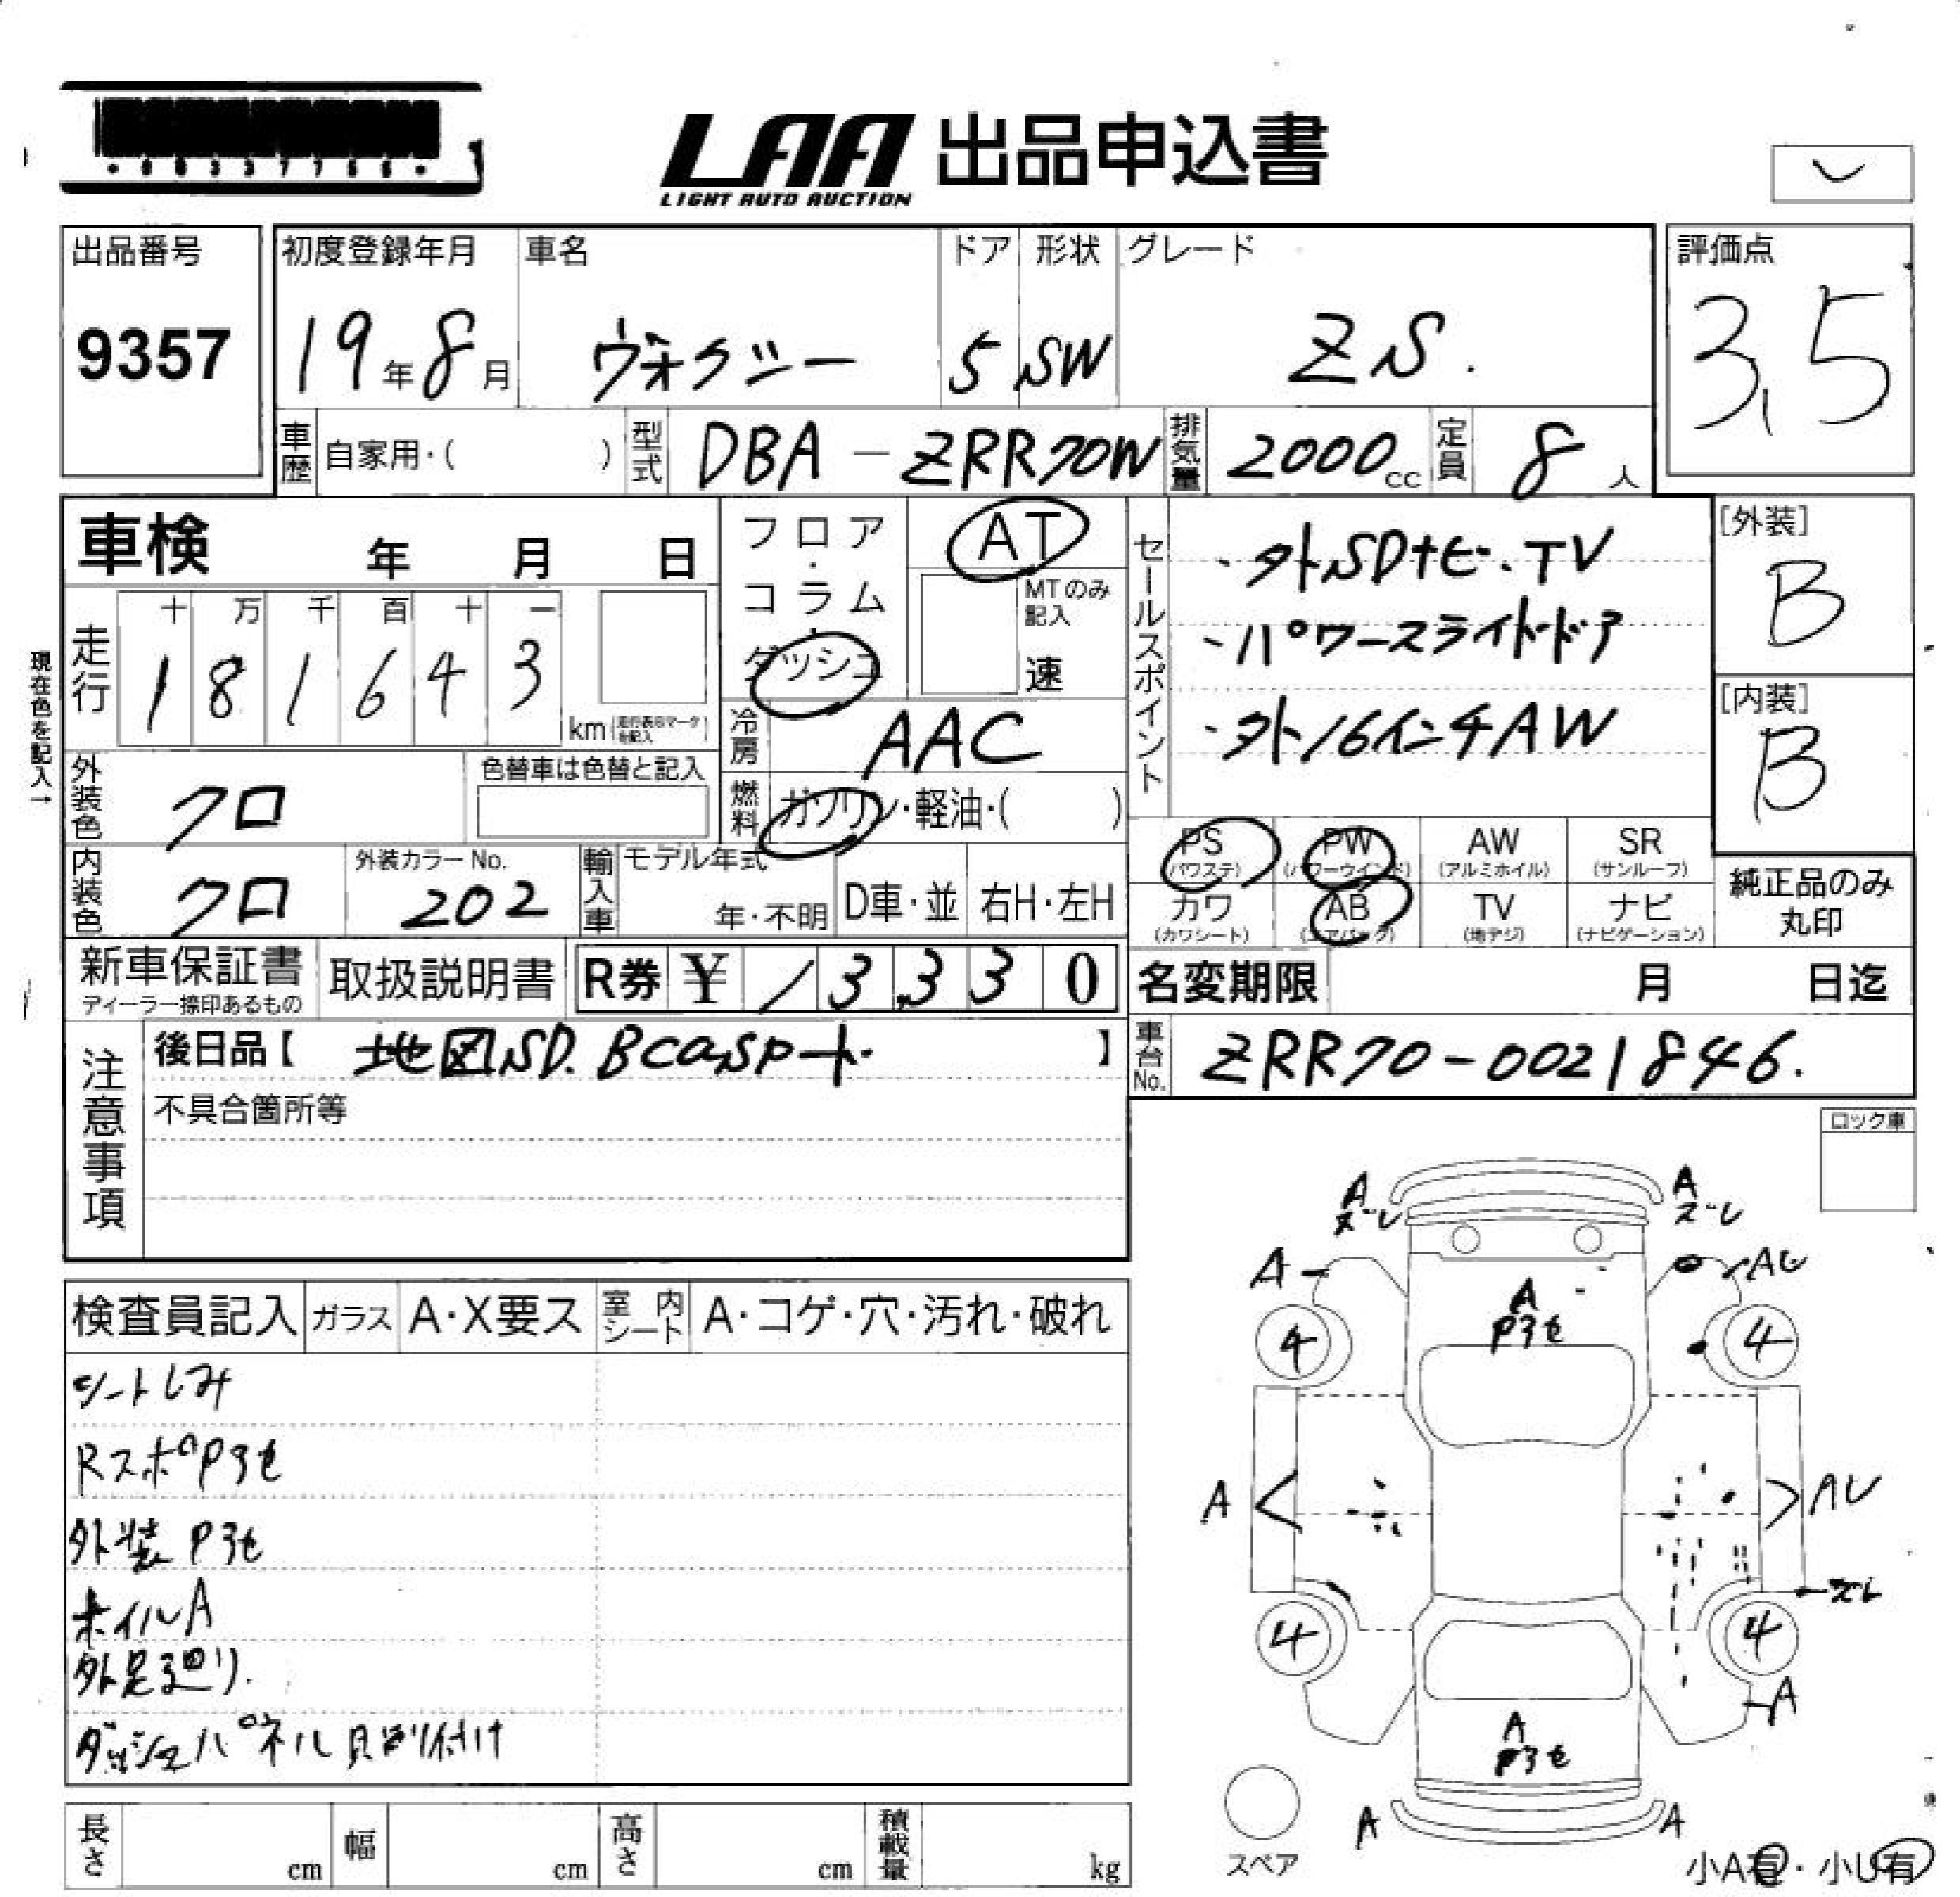 LAA 出品申込書
LIGHT AUTO AUCTION
出品番号
9357
初度登録年月
19年8月
車名
ヴォクシー
ドア
5
形状
SW
グレード
ZS.
評価点
3.5
車歴 自家用・( )
型式 DBA-ZRR70W
排気量 2000cc
定員 8人
車検 年 月 日
フロア・コラム・ダッシュ
AT
MTのみ記入
速
セールスポイント
・外SDナビ・TV
・パワースライドドア
・外16インチAW
[外装]
B
[内装]
B
現在色を記入→
走行
十 万 千 百 十 一
1 8 1 6 4 3
km
冷房 AAC
外装色 クロ
色替車は色替と記入
燃料 ガソリン・軽油・( )
内装色 クロ
外装カラーNo.
202
輸入車
モデル年式
年・不明
D車・並
右H・左H
PS (パワステ)
PW (パワーウインド)
AW (アルミホイル)
SR (サンルーフ)
カワ (カワシート)
AB (エアバッグ)
TV (地デジ)
ナビ (ナビゲーション)
純正品のみ
丸印
新車保証書
ディーラー捺印あるもの
取扱説明書
R券 ¥ 13,330
名変期限 月 日迄
注意事項
後日品【 地図SD. BCasカード 】
車台No. ZRR70-0021846.
不具合箇所等
ロック車
検査員記入
ガラス
A・X要ス
室内シート
A・コゲ・穴・汚れ・破れ
シートしみ
RスポP3セ
外装P3セ
ホイルA
外足廻り.
ダッシュパネル貼り付け
A
ズレ
A
ズレ
A
AU
A
P3セ
4
4
A
AU
ズレ
4
4
A
A
P3セ
A
A
スペア
小A有・小U有
長さ cm
幅 cm
高さ cm
積載量 kg